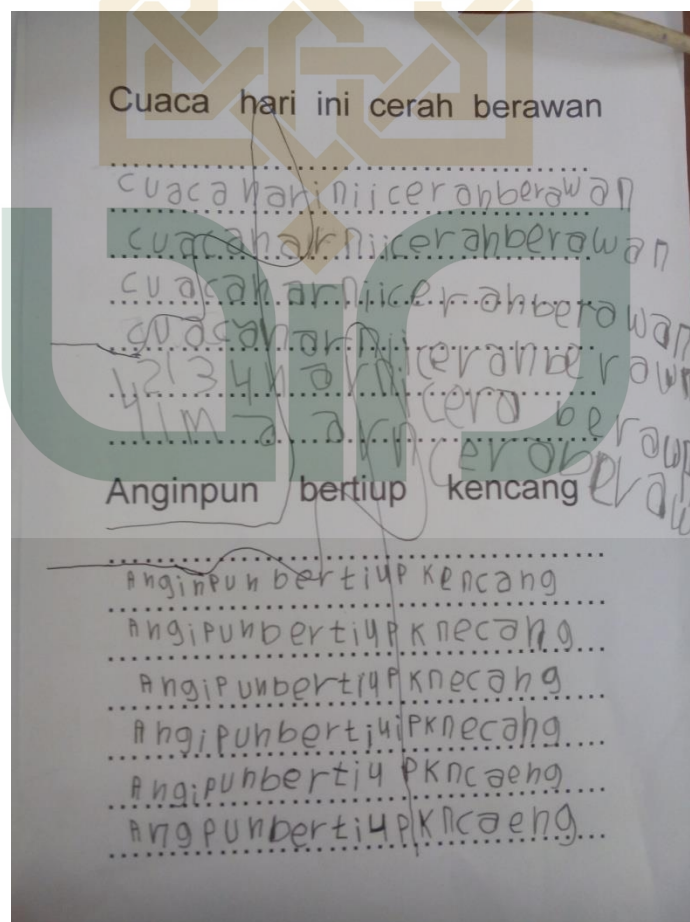 Cuaca hari ini cerah berawan
cuacahariniicerahberawan
cuacahairniicerahberawan
cuacaharniicerahberawan
cuacaharniiceranberawn
42134harnicera berawn
4lima arnceraberaw
Anginpun bertiup kencang
Anginpunbertiupkencang
Angipunbertiupknecang
Angipunbertiupknecang
Angipunbertiuipknecang
Angipunbertiupkncaeng
Angpunbertiupkncaeng